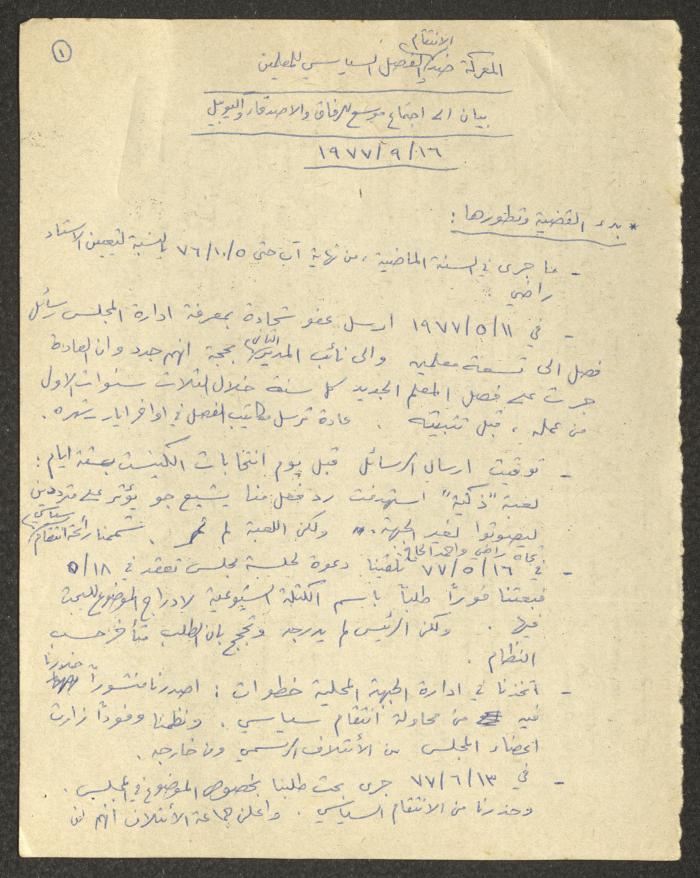 ١
الانتقام
المعركة ضد الفصل السياسي للمعلمين
بيان الى اجتماع موسع للرفاق والاصدقاء واليوبيل
١٩٧٧/٩/١٦
* بدء القضية وتطورها :
- ما جرى في السنة الماضية ، من نهاية آب حتى ٧٦/١٠/٥ بالنسبة لتعيين الاستاذ
راضي .
- في ١٩٧٧/٥/١١ ارسل عفو شحادة بمعرفة ادارة المجلس رسائل
فصل الى تسعة معلمين والى نائب المدير الثاني بحجة انهم جدد وان العادة
جرت على فصل المعلم الجديد كل سنة خلال الثلاث سنوات الاول
من عمله ، قبل تثبيته . عادة ترسل مكاتيب الفصل في اواخر ايار
- توقيت ارسال الرسائل قبل يوم انتخابات الكنيست بستة ايام :
لعبة "ذكية" استهدفت رد فعل منا يشيع جو يؤثر على مترددين
ليصوتوا لغير الجبهة . ولكن اللعبة لم تمر . شممنا رائحة انتقام سياسي
تجاه راضي واحمد
- في ٧٧/٥/١٦ تلقينا دعوة لجلسة مجلس تعقد في ٥/١٨
فبعثنا فوراً طلباً باسم الكتلة الشيوعية لادراج الموضوع للبحث
فيها . ولكن الرئيس لم يدرجه وتحجج بان الطلب متأخر حسب
النظام .
- اتخذنا في ادارة الجبهة المحلية خطوات : اصدرنا منشوراً حذرنا
فيه من محاولة انتقام سياسي . ونظمنا وفوداً زارت
اعضاء المجلس من الأئتلاف الرسمي ومن خارجه .
- في ٧٧/٦/١٣ جرى بحث طلبنا بخصوص الموضوع في المجلس .
وحذرنا من الانتقام السياسي . واعلن جماعة الأئتلاف انهم لن